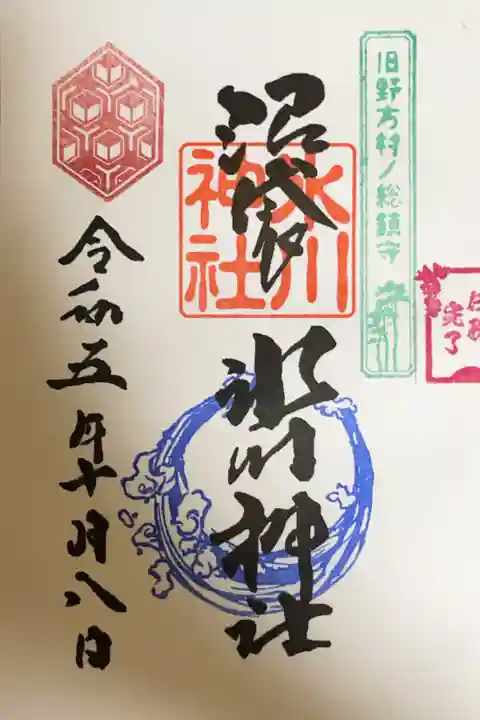 旧野方村ノ総鎮守
沼袋
氷川神社
氷川
神社
令和五年十月八日
完了